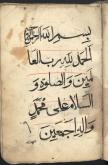 بسم الله الرحمن الرحيم
الحمد لله رب العا
لمين والصلوة و
السلام على محمد
واله اجمعين